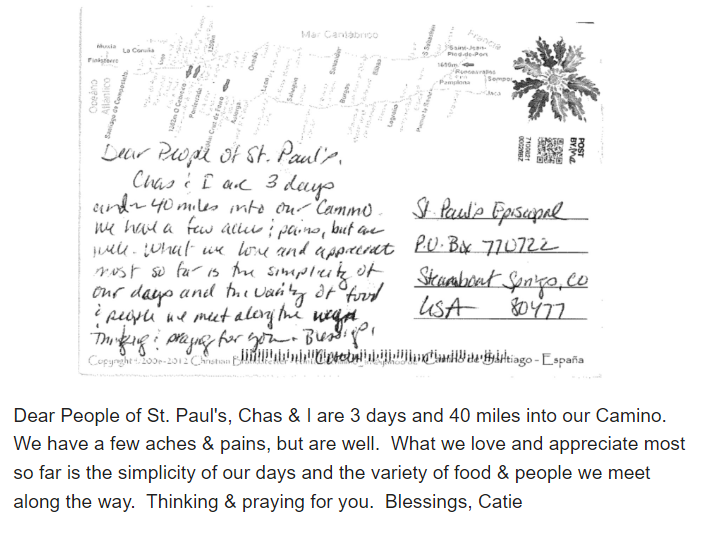 Mar Cantábrico
Francia
Muxía
La Coruña
Finisterre
Océano
Atlántico
Santiago de Compostela
Lugo
Oviedo
León
Sahagún
Santander
Burgos
Bilbao
Logroño
S. Sebastián
Saint-Jean-
Pied-de-Port
Roncesvalles
Pamplona
Somport
Jaca
Ponferrada
Astorga
POST
BY
Dear People of St. Paul's,
Chas & I are 3 days
and ~ 40 miles into our Camino.
We have a few aches & pains, but are
well. What we love and appreciate
most so far is the simplicity of
our days and the variety of food
& people we meet along the way
Thinking & praying for you. Blessings,
St. Paul's Episcopal
P.O. Box 770722
Steamboat Springs, CO
USA 80477
Copyright 2007-2012 Christian
Santiago - España
Dear People of St. Paul's, Chas & I are 3 days and 40 miles into our Camino.
We have a few aches & pains, but are well. What we love and appreciate most
so far is the simplicity of our days and the variety of food & people we meet
along the way. Thinking & praying for you. Blessings, Catie